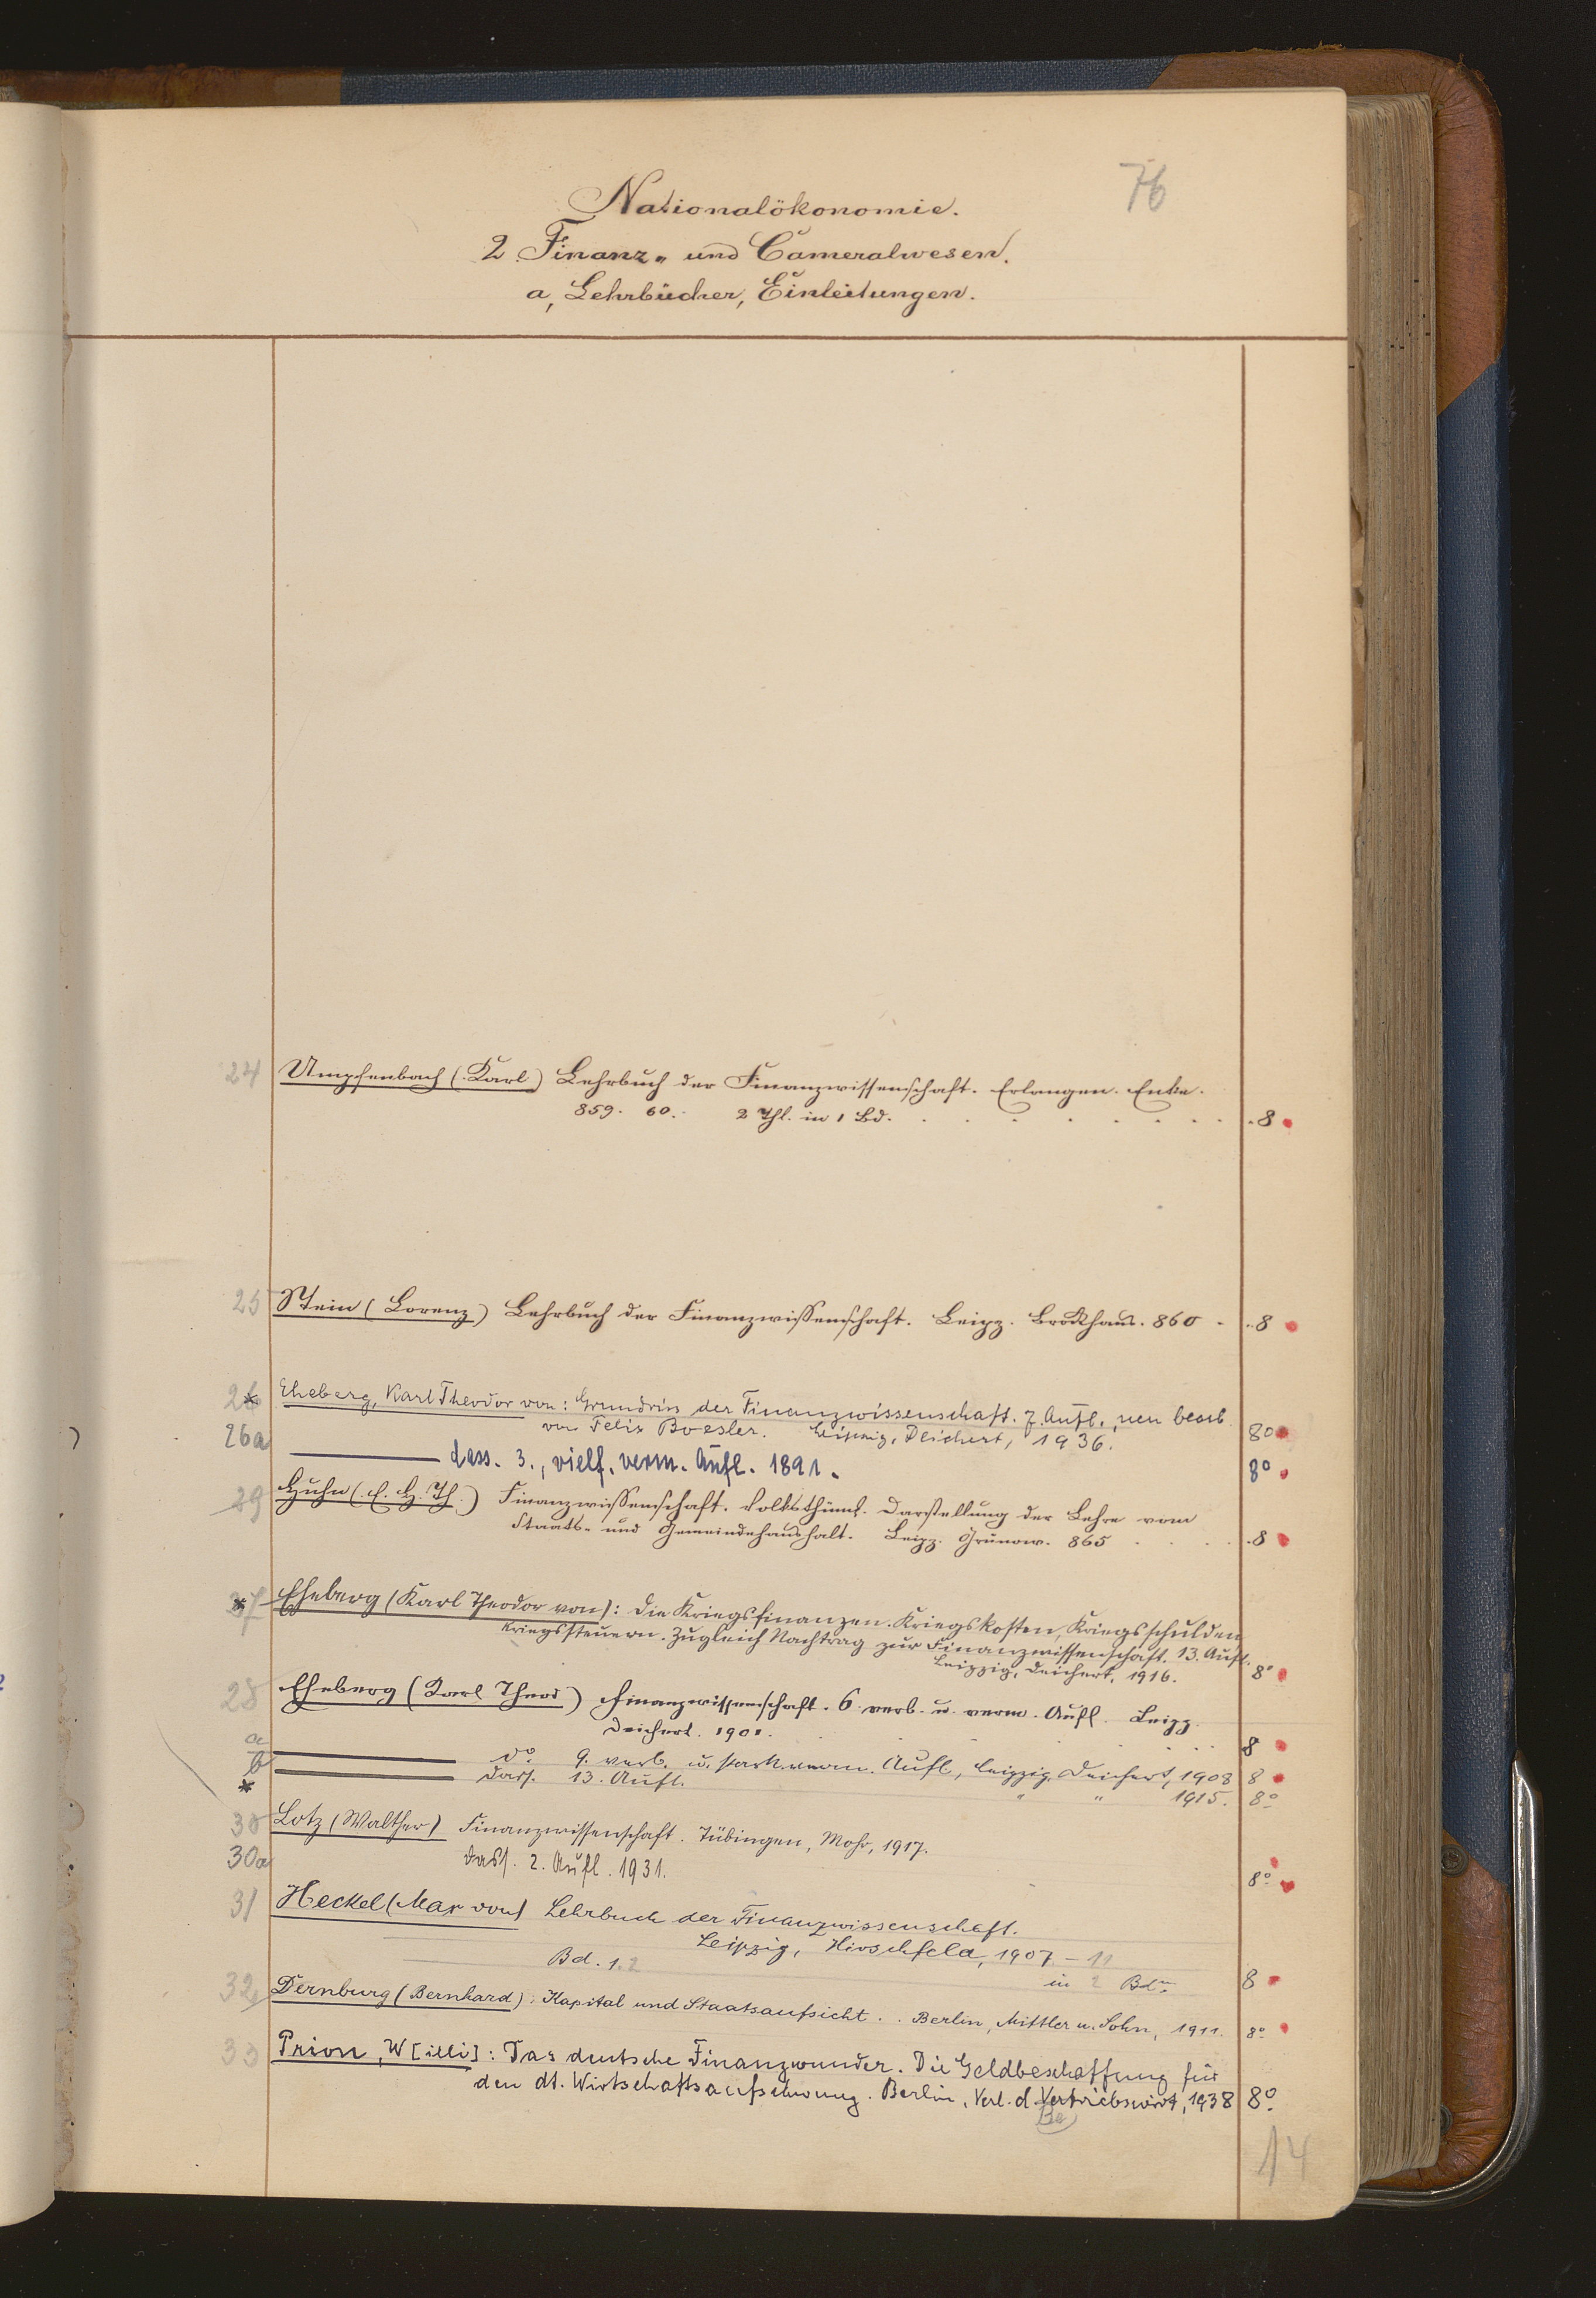 76
Nationalökonomie.
2. Finanz- und Cameralwesen.
a, Lehrbücher, Einleitungen.
24 Umpfenbach (Karl) Lehrbuch der Finanzwissenschaft. Erlangen. Enke.
859. 60. 2 Thl. in 1 Bd. . . . . . . . 8
25 Stein (Lorenz) Lehrbuch der Finanzwissenschaft. Leipz. Brockhaus. 860 . . 8
26 * Eheberg, Karl Theodor von: Grundriss der Finanzwissenschaft. 7. Aufl., neu bearb.
von Felix Boesler. Leipzig, Deichert, 1936. 8o
26a ——— dass. 3., vielf. verm. Aufl. 1891. 8o
29 Huhn (E. H. Th.) Finanzwissenschaft. Volksthüml. Darstellung der Lehre vom
Staats- und Gemeindehaushalt. Leipz. Grunow. 865 . . . . 8
27 * Eheberg (Karl Theodor von): Die Kriegsfinanzen. Kriegskosten, Kriegsschulden,
Kriegssteuern. Zugleich Nachtrag zur Finanzwissenschaft. 13. Aufl.
Leipzig, Deichert, 1916. 8o
28 Eheberg (Karl Theod) Finanzwissenschaft. 6. verb. u. verm. Aufl. Leipz.
Deichert. 1901. . . . . . 8
a ——— do. 9. verb. u. stark verm. Aufl., Leipzig, Deichert, 1908 8
b * ——— Dass. 13. Aufl. " " 1915. 8o
30 Lotz (Walther) Finanzwissenschaft. Tübingen, Mohr, 1917.
30a Dass. 2. Aufl. 1931. 8o
31 Heckel (Max von) Lehrbuch der Finanzwissenschaft.
Leipzig, Hirschfeld, 1907 - 11
Bd. 1.2 in 2 Bdn. 8
32 Dernburg (Bernhard): Kapital und Staatsaufsicht. . Berlin, Mittler u. Sohn, 1911. 8o
33 Prion, W[illi]: Das deutsche Finanzwunder. Die Geldbeschaffung für
den dt. Wirtschaftsaufschwung. Berlin, Verl. d. Vertriebswirt, 1938 8o
Be
14